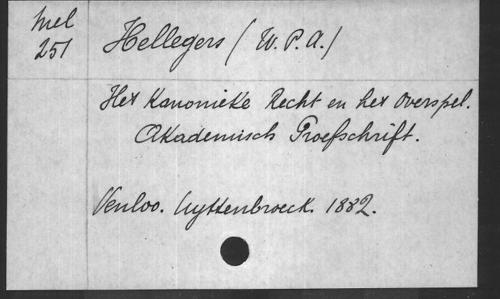 Mel
251
Hellegers (W.P.A.)
Het Kanonieke Recht en het overspel.
Akademisch Proefschrift.
Venloo. Uyttenbroeck. 1882.